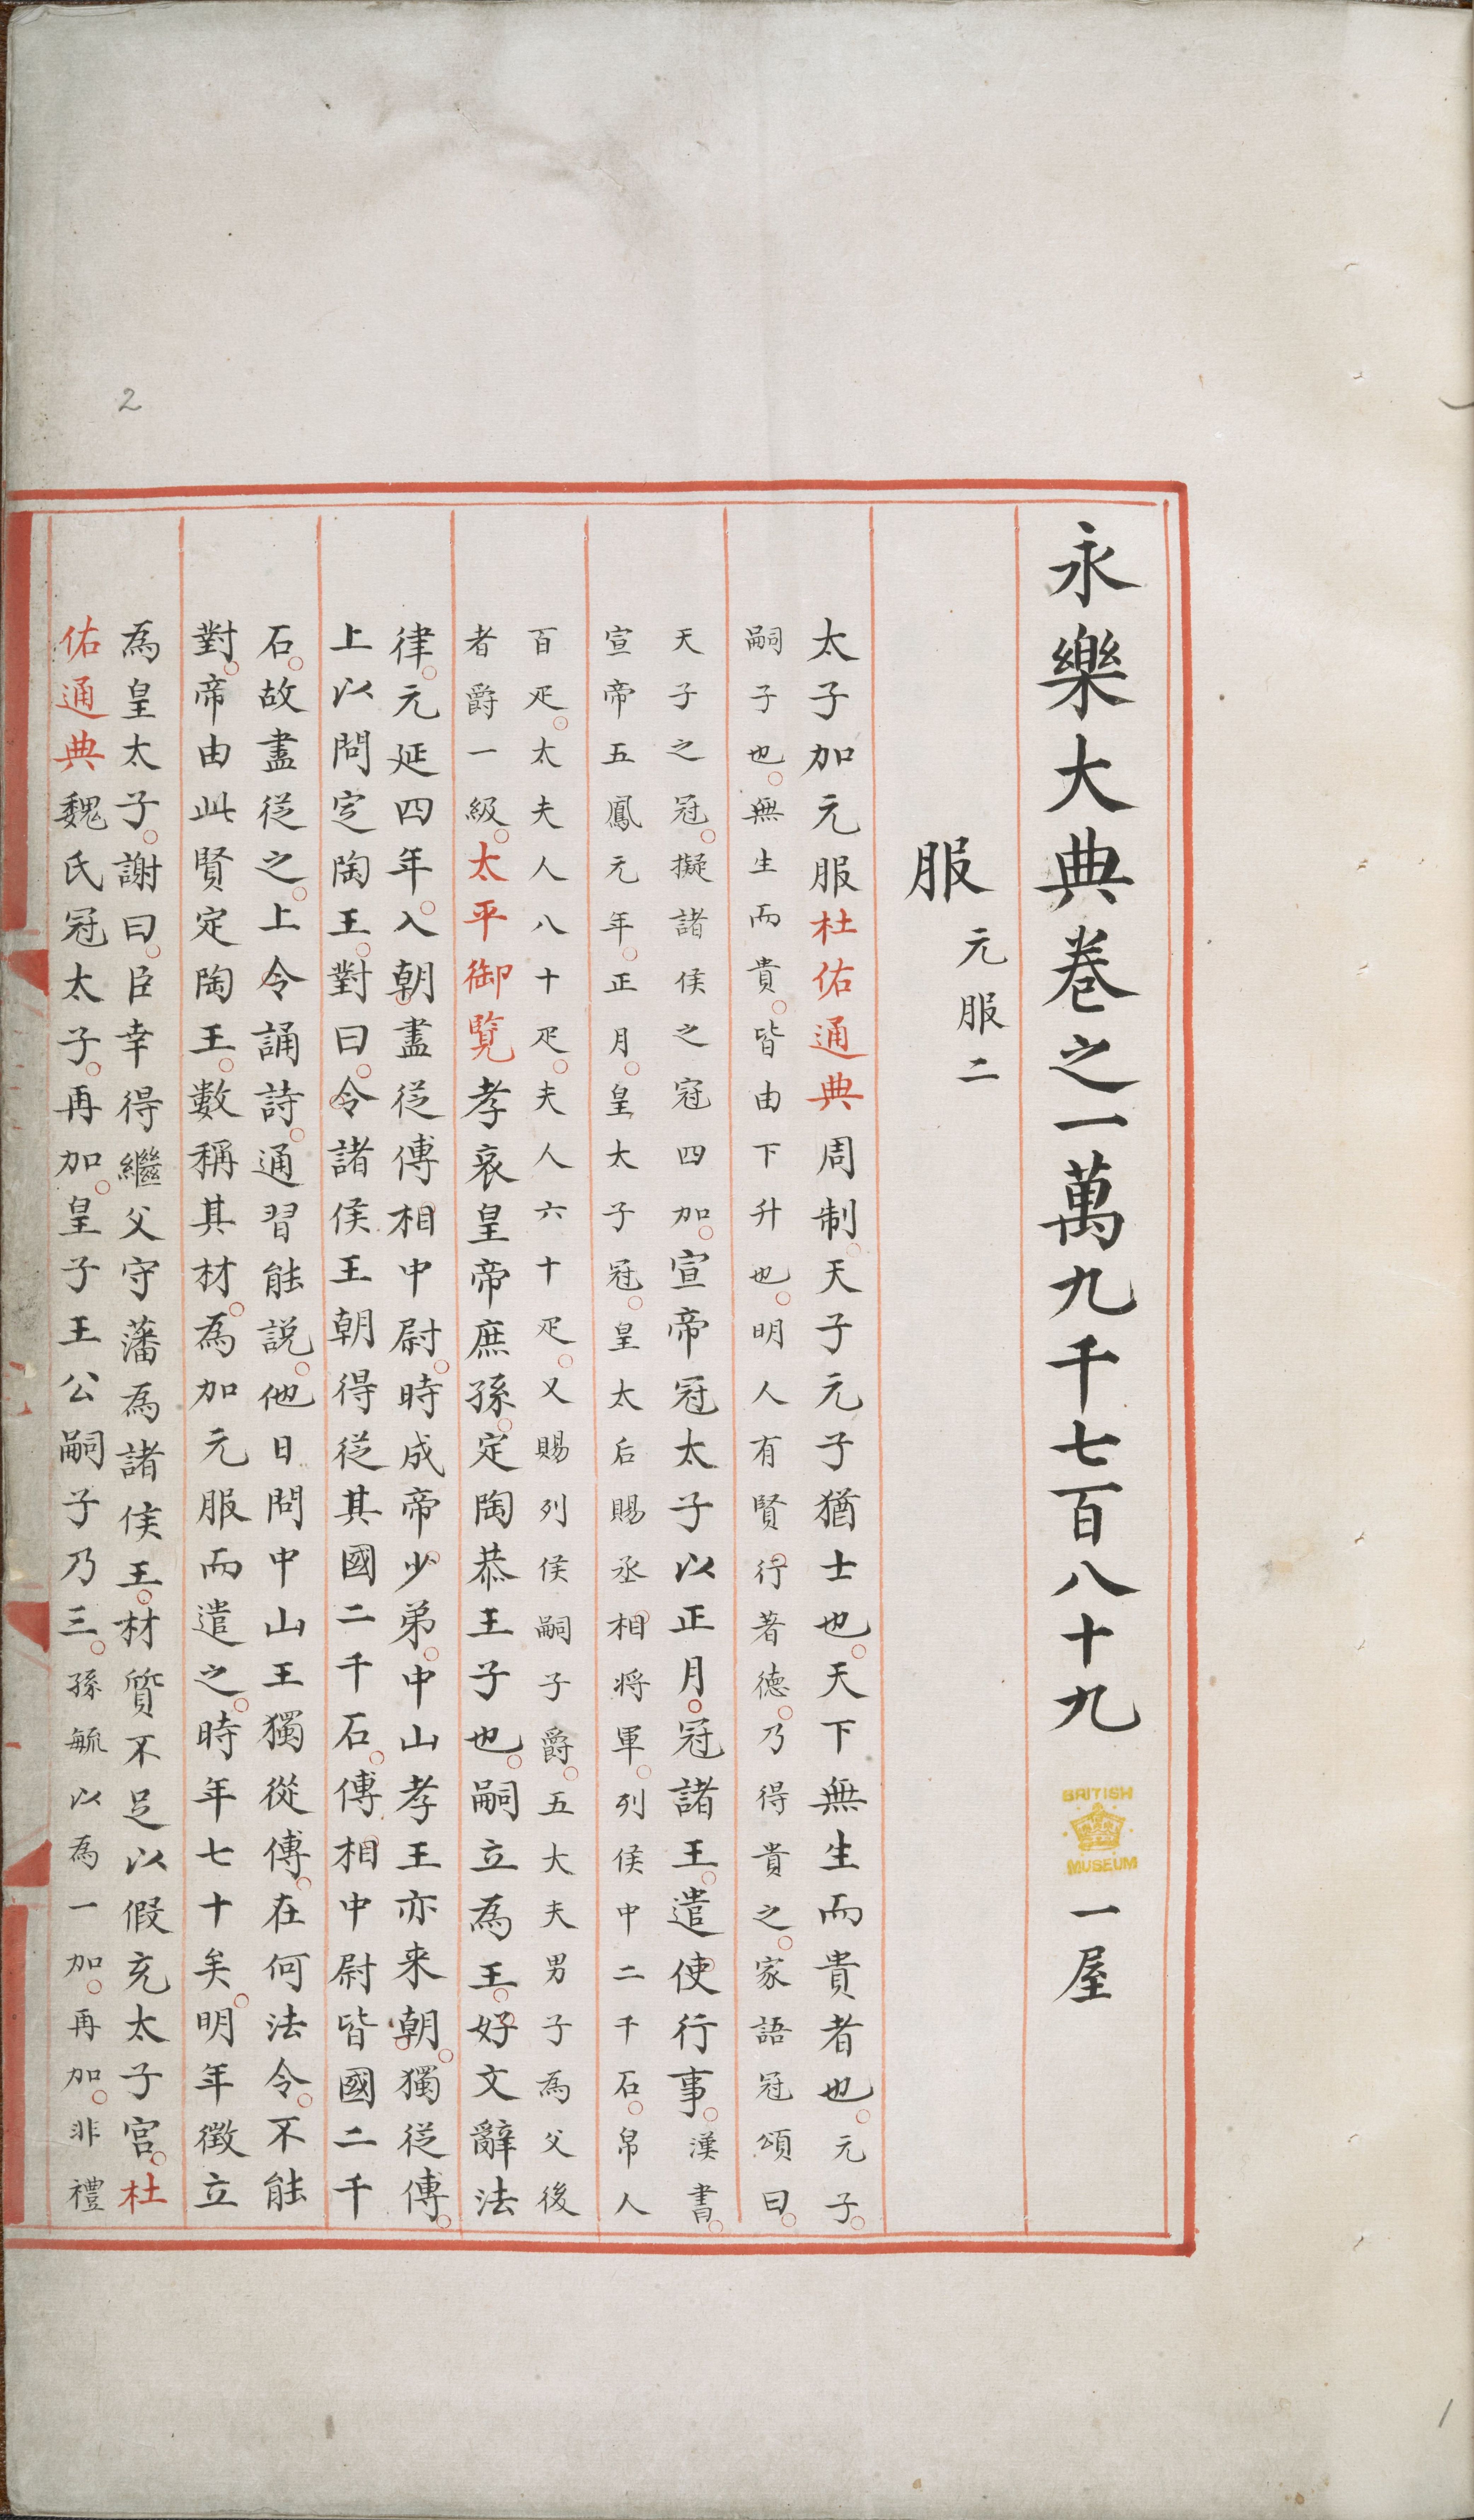 永樂大典卷之一萬九千七百八十九 一屋
BRITISH
MUSEUM
服 元服二
太子加元服杜佑通典周制。天子元子猶士也。天下無生而貴者也。元子。
嗣子也。無生而貴。皆由下升也。明人有賢行著德。乃得貴之。家語冠頌曰。
天子之冠。擬諸侯之冠四加。宣帝冠太子以正月。冠諸王。遣使行事。漢書。
宣帝五鳳元年。正月。皇太子冠。皇太后賜丞相將軍。列侯中二千石。帛人
百疋。太夫人八十疋。夫人六十疋。又賜列侯嗣子爵。五大夫男子為父後
者爵一級。太平御覽孝哀皇帝庶孫。定陶恭王子也。嗣立為王。好文辭法
律。元延四年。入朝盡從傅相中尉。時成帝少弟。中山孝王亦来朝。獨從傅。
上以問定陶王。對曰。令諸侯王朝得從其國二千石。傅相中尉皆國二千
石。故盡從之。上令誦詩。通習能説。他日問中山王獨從傅。在何法令。不能
對。帝由此賢定陶王。數稱其材。為加元服而遣之。時年七十矣。明年徵立
為皇太子。謝曰。臣幸得繼父守藩為諸侯王。材質不足以假充太子宮。杜
佑通典魏氏冠太子。再加。皇子王公嗣子乃三。孫毓以為一加。再加。非禮
2
1